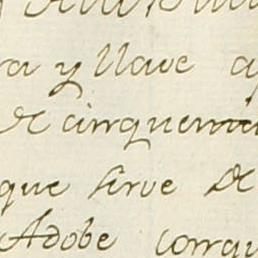 ra y llave
de cinquenta
que sirve de
Adobe conqu